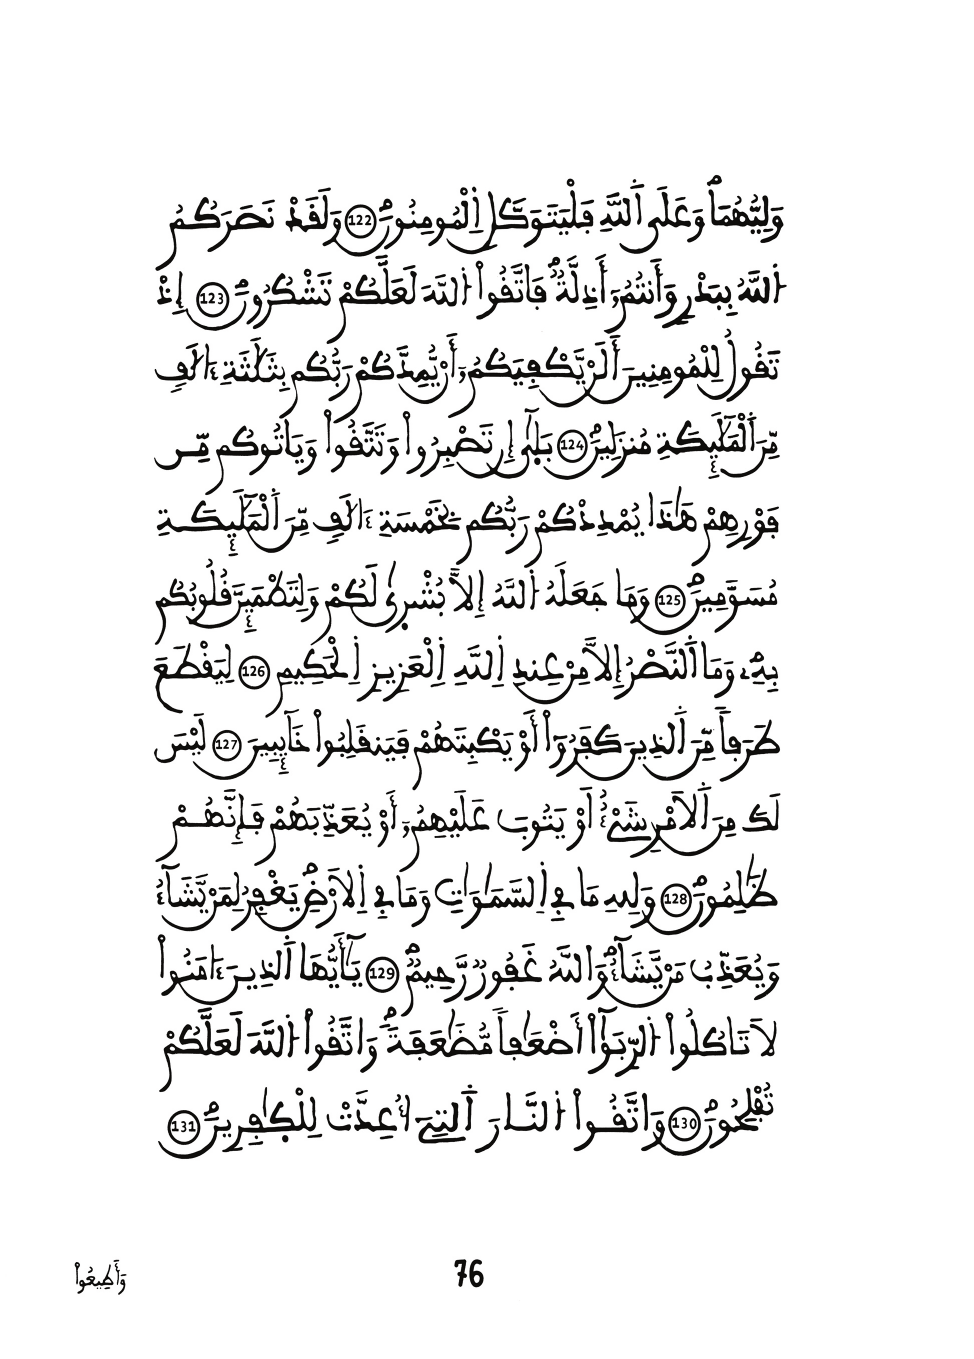 وَلِيُّهُمَاۖ وَعَلَى اَ۬للَّهِ فَلْيَتَوَكَّلِ اِ۬لْمُومِنُونَۖ 122 وَلَقَدْ نَصَرَكُمُ
اُ۬للَّهُ بِبَدْرٖ وَأَنتُمُۥٓ أَذِلَّةٞۖ فَاتَّقُواْ اُ۬للَّهَ لَعَلَّكُمْ تَشْكُرُونَۖ 123 إِذْ
تَقُولُ لِلْمُومِنِينَ أَلَنْ يَّكْفِيَكُمُۥٓ أَنْ يُّمِدَّكُمْ رَبُّكُم بِثَلَٰثَةِ ءَالَٰفٖ
مِّنَ اَ۬لْمَلَٰٓئِكَةِ مُنزَلِينَۖ 124 بَلَىٰٓ إِن تَصْبِرُواْ وَتَتَّقُواْ وَيَاتُوكُم مِّن
فَوْرِهِمْ هَٰذَا يُمْدِدْكُمْ رَبُّكُم بِخَمْسَةِ ءَالَٰفٖ مِّنَ اَ۬لْمَلَٰٓئِكَةِ
مُسَوَّمِينَۖ 125 وَمَا جَعَلَهُ اُ۬للَّهُ إِلَّا بُشْر۪ىٰ لَكُمْ وَلِتَطْمَئِنَّ قُلُوبُكُم
بِهِۦۖ وَمَا اَ۬لنَّصْرُ إِلَّا مِنْ عِندِ اِ۬للَّهِ اِ۬لْعَزِيزِ اِ۬لْحَكِيمِ 126 لِيَقْطَعَ
طَرَفاٗ مِّنَ اَ۬لذِينَ كَفَرُوٓاْ أَوْ يَكْبِتَهُمْ فَيَنقَلِبُواْ خَآئِبِينَ 127 لَيْسَ
لَكَ مِنَ اَ۬لَامْرِ شَےْءٌ اَوْ يَتُوبَ عَلَيْهِمُۥٓ أَوْ يُعَذِّبَهُمْ فَإِنَّهُمْ
ظَٰلِمُونَۖ 128 وَلِلهِ مَا فِے اِ۬لسَّمَٰوَٰتِ وَمَا فِے اِ۬لَارْضِۖ يَغْفِرُ لِمَنْ يَّشَآءُ
وَيُعَذِّبُ مَنْ يَّشَآءُۖ وَاللَّهُ غَفُورٞ رَّحِيمٞۖ 129 يَٰٓأَيُّهَا اَ۬لذِينَ ءَامَنُواْ
لَا تَاكُلُواْ اُ۬لرِّبَوٰٓاْ أَضْعَٰفاٗ مُّضَٰعَفَةٗۖ وَاتَّقُواْ اُ۬للَّهَ لَعَلَّكُمْ
تُفْلِحُونَۖ 130 وَاتَّقُواْ اُ۬لنَّارَ اَ۬لتِےٓ أُعِدَّتْ لِلْكٰ۪فِرِينَۖ 131
76
وَأَطِيعُواْ